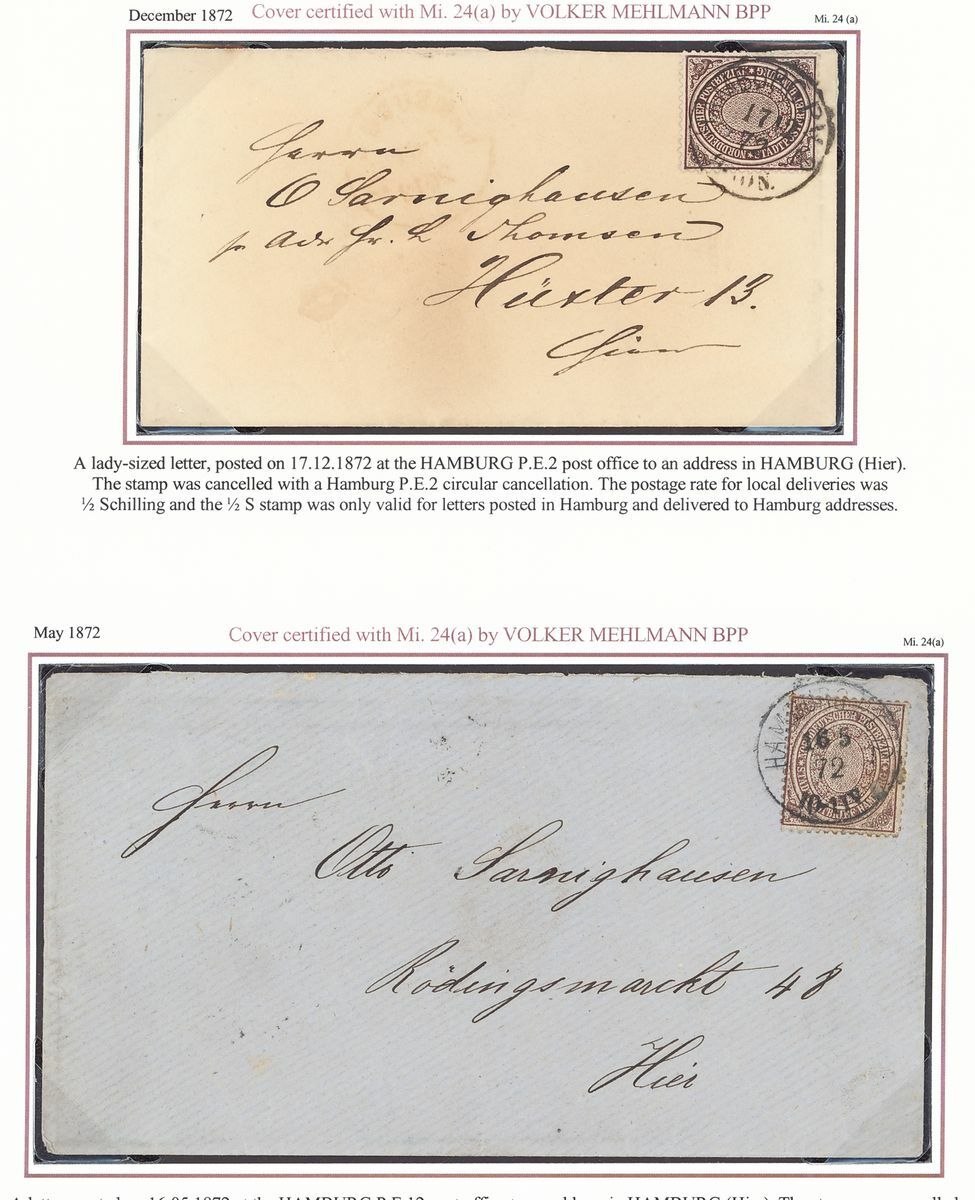 December 1872
Cover certified with Mi. 24(a) by VOLKER MEHLMANN BPP
Mi. 24 (a)
NORDDEUTSCHER POSTBEZIRK STADTPOSTBRIEF HAMBURG
17 12
72
Herrn
O Sarnighausen
pr Adr Hr. L Thomsen
Hüxter 13.
Hier
A lady-sized letter, posted on 17.12.1872 at the HAMBURG P.E.2 post office to an address in HAMBURG (Hier).
The stamp was cancelled with a Hamburg P.E.2 circular cancellation. The postage rate for local deliveries was
½ Schilling and the ½ S stamp was only valid for letters posted in Hamburg and delivered to Hamburg addresses.
May 1872
Cover certified with Mi. 24(a) by VOLKER MEHLMANN BPP
Mi. 24(a)
HAMBURG
16 5
72
10-11V
Herrn
Otto Sarnighausen
Rödingsmarckt 48
Hier